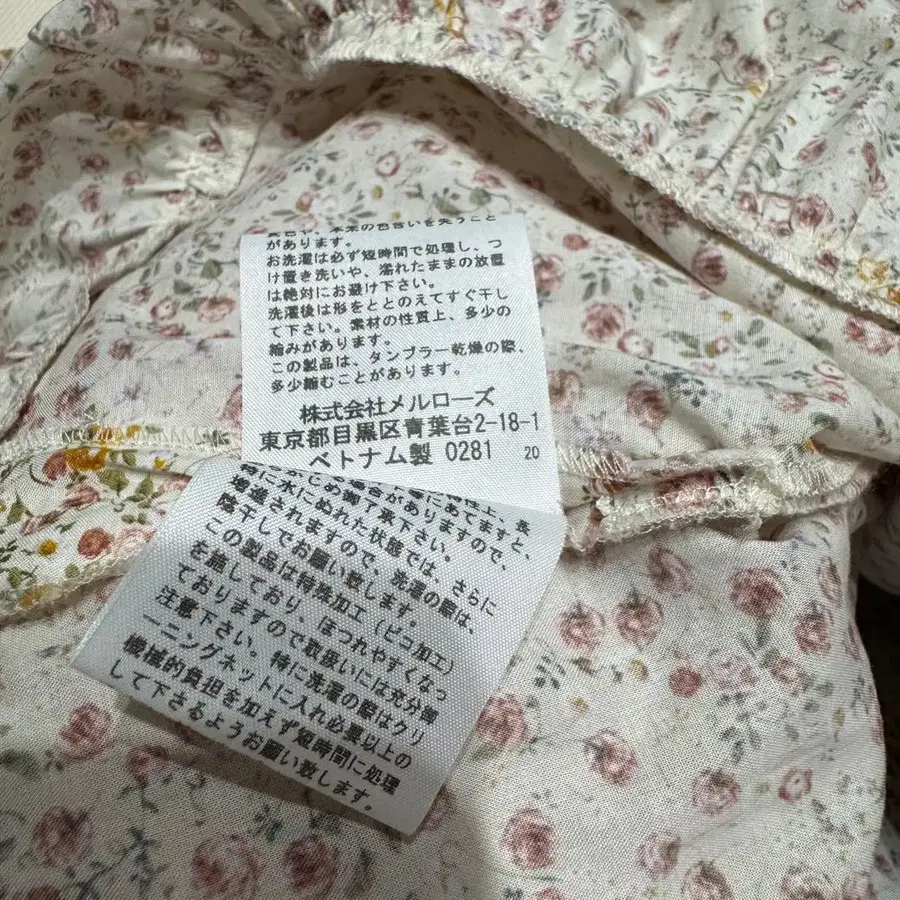 変色や、本来の色合いを失うこと
があります。
お洗濯は必ず短時間で処理し、つ
け置き洗いや、濡れたままの放置
は絶対にお避け下さい。
洗濯後は形をととのえてすぐ干し
て下さい。素材の性質上、多少の
縮みがあります。
この製品は、タンブラー乾燥の際、
多少縮むことがあります。
株式会社メルローズ
東京都目黒区青葉台2-18-1
ベトナム製 0281 20
かじめ御了承下さい。
特に水にぬれた状態では、さらに
増進されますので、洗濯の際は、
陰干しでお願い致します。
この製品は特殊加工(ピコ加工)
を施しており、ほつれやすくなっ
ておりますので取扱いには充分御
注意下さい。特に洗濯の際はクリ
ーニングネットに入れ必要以上の
機械的負担を加えず短時間に処理
して下さるようお願い致します。